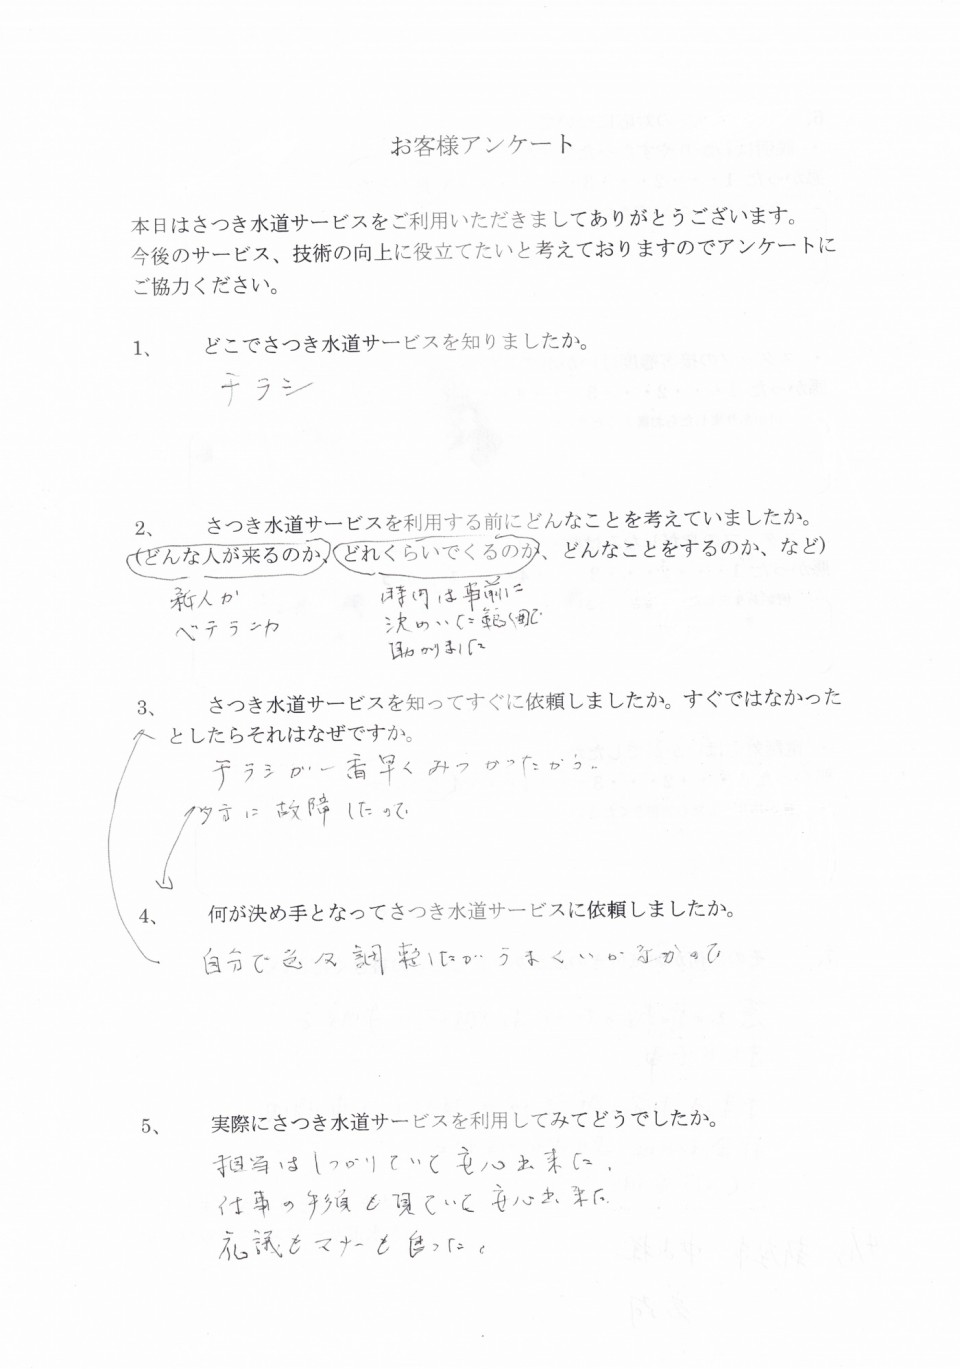 お客様アンケート
本日はさつき水道サービスをご利用いただきましてありがとうございます。
今後のサービス、技術の向上に役立てたいと考えておりますのでアンケートに
ご協力ください。
1、 どこでさつき水道サービスを知りましたか。
チラシ
2、 さつき水道サービスを利用する前にどんなことを考えていましたか。
(どんな人が来るのか、どれくらいでくるのか、どんなことをするのか、など)
新人か
ベテランか
時間は事前に
決めいた範囲で
助かりました
3、 さつき水道サービスを知ってすぐに依頼しましたか。すぐではなかった
としたらそれはなぜですか。
チラシが一番早くみつかったから。
夕方に故障したので
4、 何が決め手となってさつき水道サービスに依頼しましたか。
自分で 調整したがうまくいかなかので
5、 実際にさつき水道サービスを利用してみてどうでしたか。
担当はしっかりていて安心出来た。
仕事の手順も見ていて安心出来た
礼儀もマナーも良った。